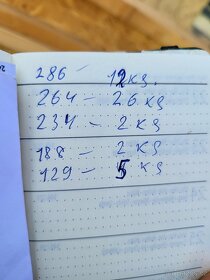 286 - 12 kg.
264 - 26 kg
234 - 2 kg
188 - 2 kg
129 - 5 kg